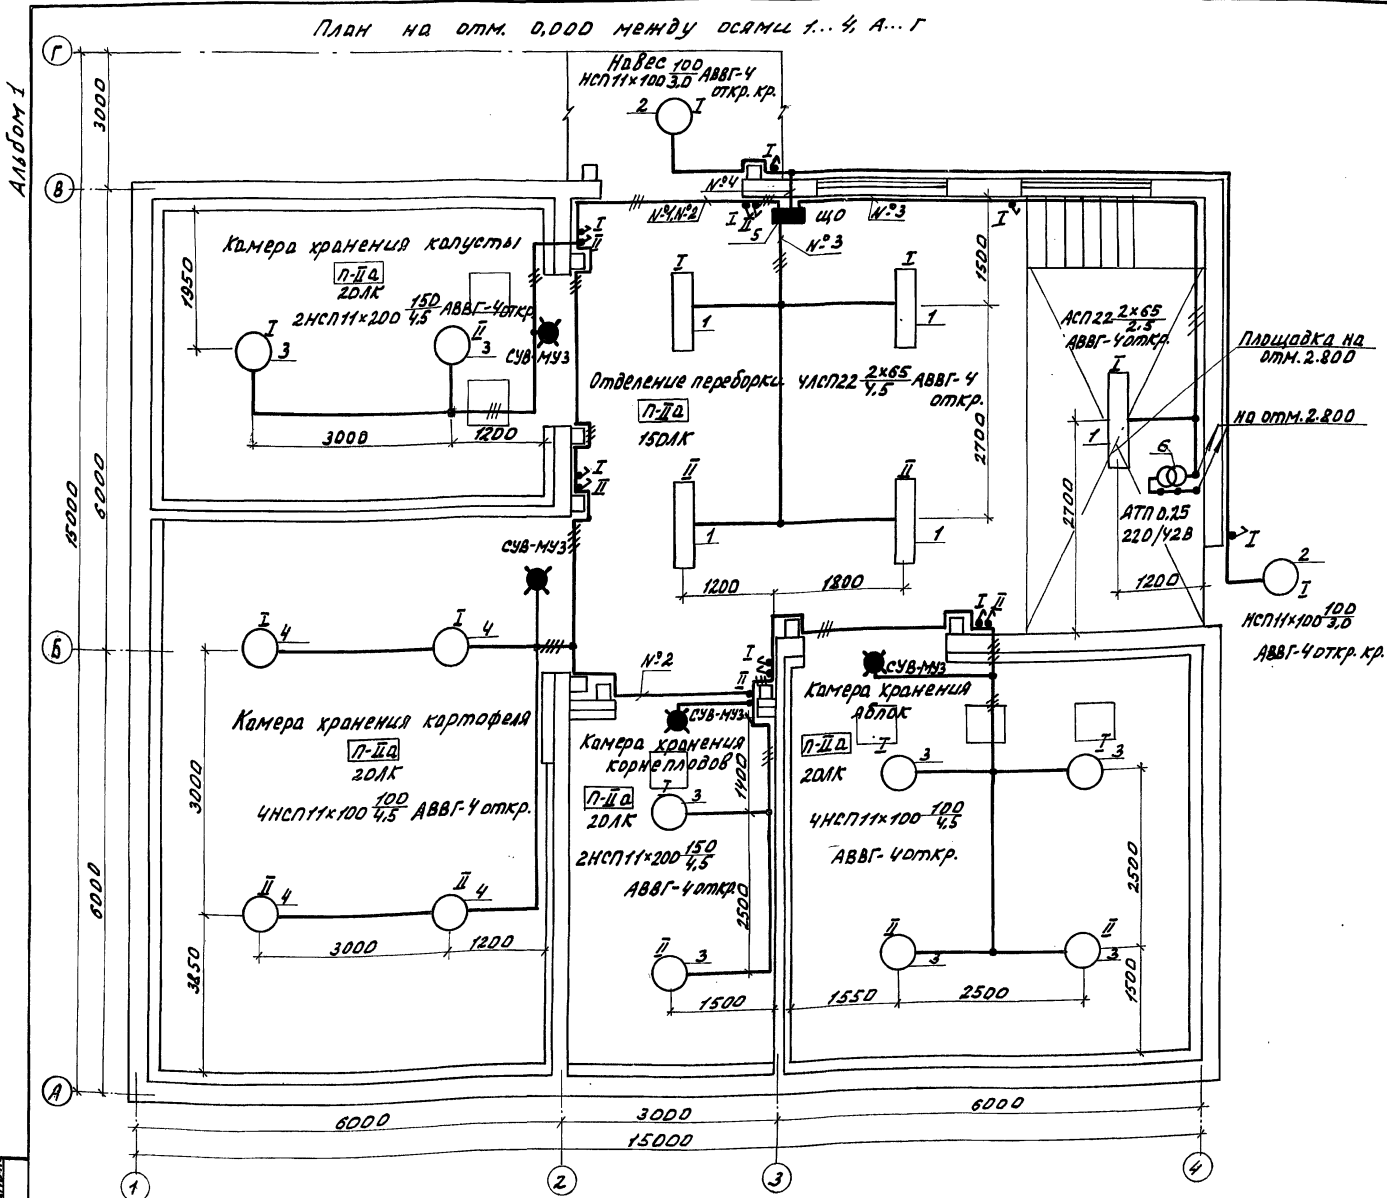 План на отм. 0,000 между осями 1...4, А...Г
Альбом 1
Г
В
Б
А
3000
6000
6000
15000
Навес
НСП11×100 100/3,0 АВВГ-4
откр. кр.
2
I
I
№4
№1,№2
I
II
5
ЩО
№3
№3
I
Камера хранения капусты
П-IIа
20ЛК
2НСП11×200 150/4,5 АВВГ-4откр.
1950
I
3
II
3
I
II
СУВ-МУЗ
3000
1200
I
1
I
1
1500
2700
Отделение переборки 4ЛСП22 2×65/4,5 АВВГ-4
откр.
П-IIа
150ЛК
II
1
II
1
1200
1800
АСП22 2×65/2,5
АВВГ-4откр.
I
1
Площадка на
отм. 2.800
на отм. 2.800
6
АТП 0.25
220/42В
2700
1200
I
2
I
НСП11×100 100/3,0
АВВГ-4 откр. кр.
I
II
СУВ-МУЗ
I
4
I
4
Камера хранения картофеля
П-IIа
20ЛК
4НСП11×100 100/4,5 АВВГ-4 откр.
3000
3850
II
4
II
4
3000
1200
№2
I
II
СУВ-МУЗ
Камера хранения
корнеплодов
П-IIа
20ЛК
I
3
2НСП11×200 150/4,5
АВВГ-4 откр.
1400
2500
II
3
1500
I
II
СУВ-МУЗ
Камера хранения
яблок
П-IIа
20ЛК
I
3
I
3
4НСП11×100 100/4,5
АВВГ-4откр.
II
3
II
3
2500
1500
1550
2500
6000
3000
6000
15000
1
2
3
4